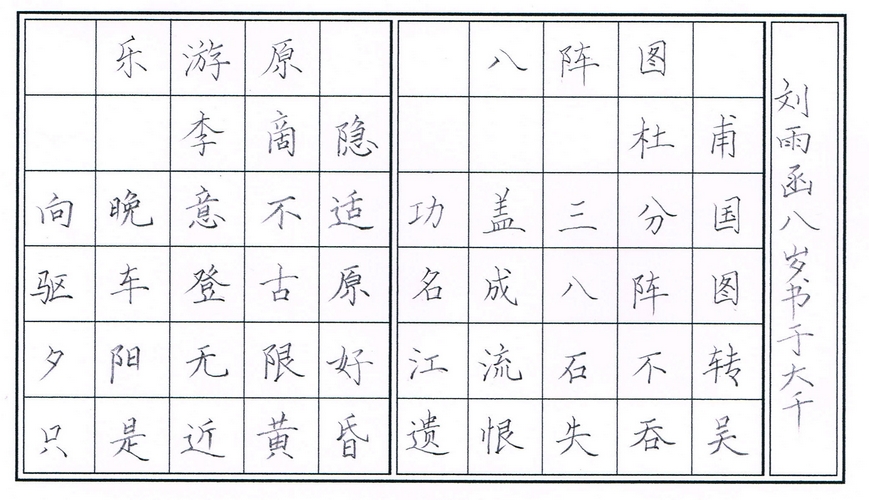 乐游原
李商隐
向晚意不适
驱车登古原
夕阳无限好
只是近黄昏
八阵图
杜甫
功盖三分国
名成八阵图
江流石不转
遗恨失吞吴
刘雨函八岁书于大千